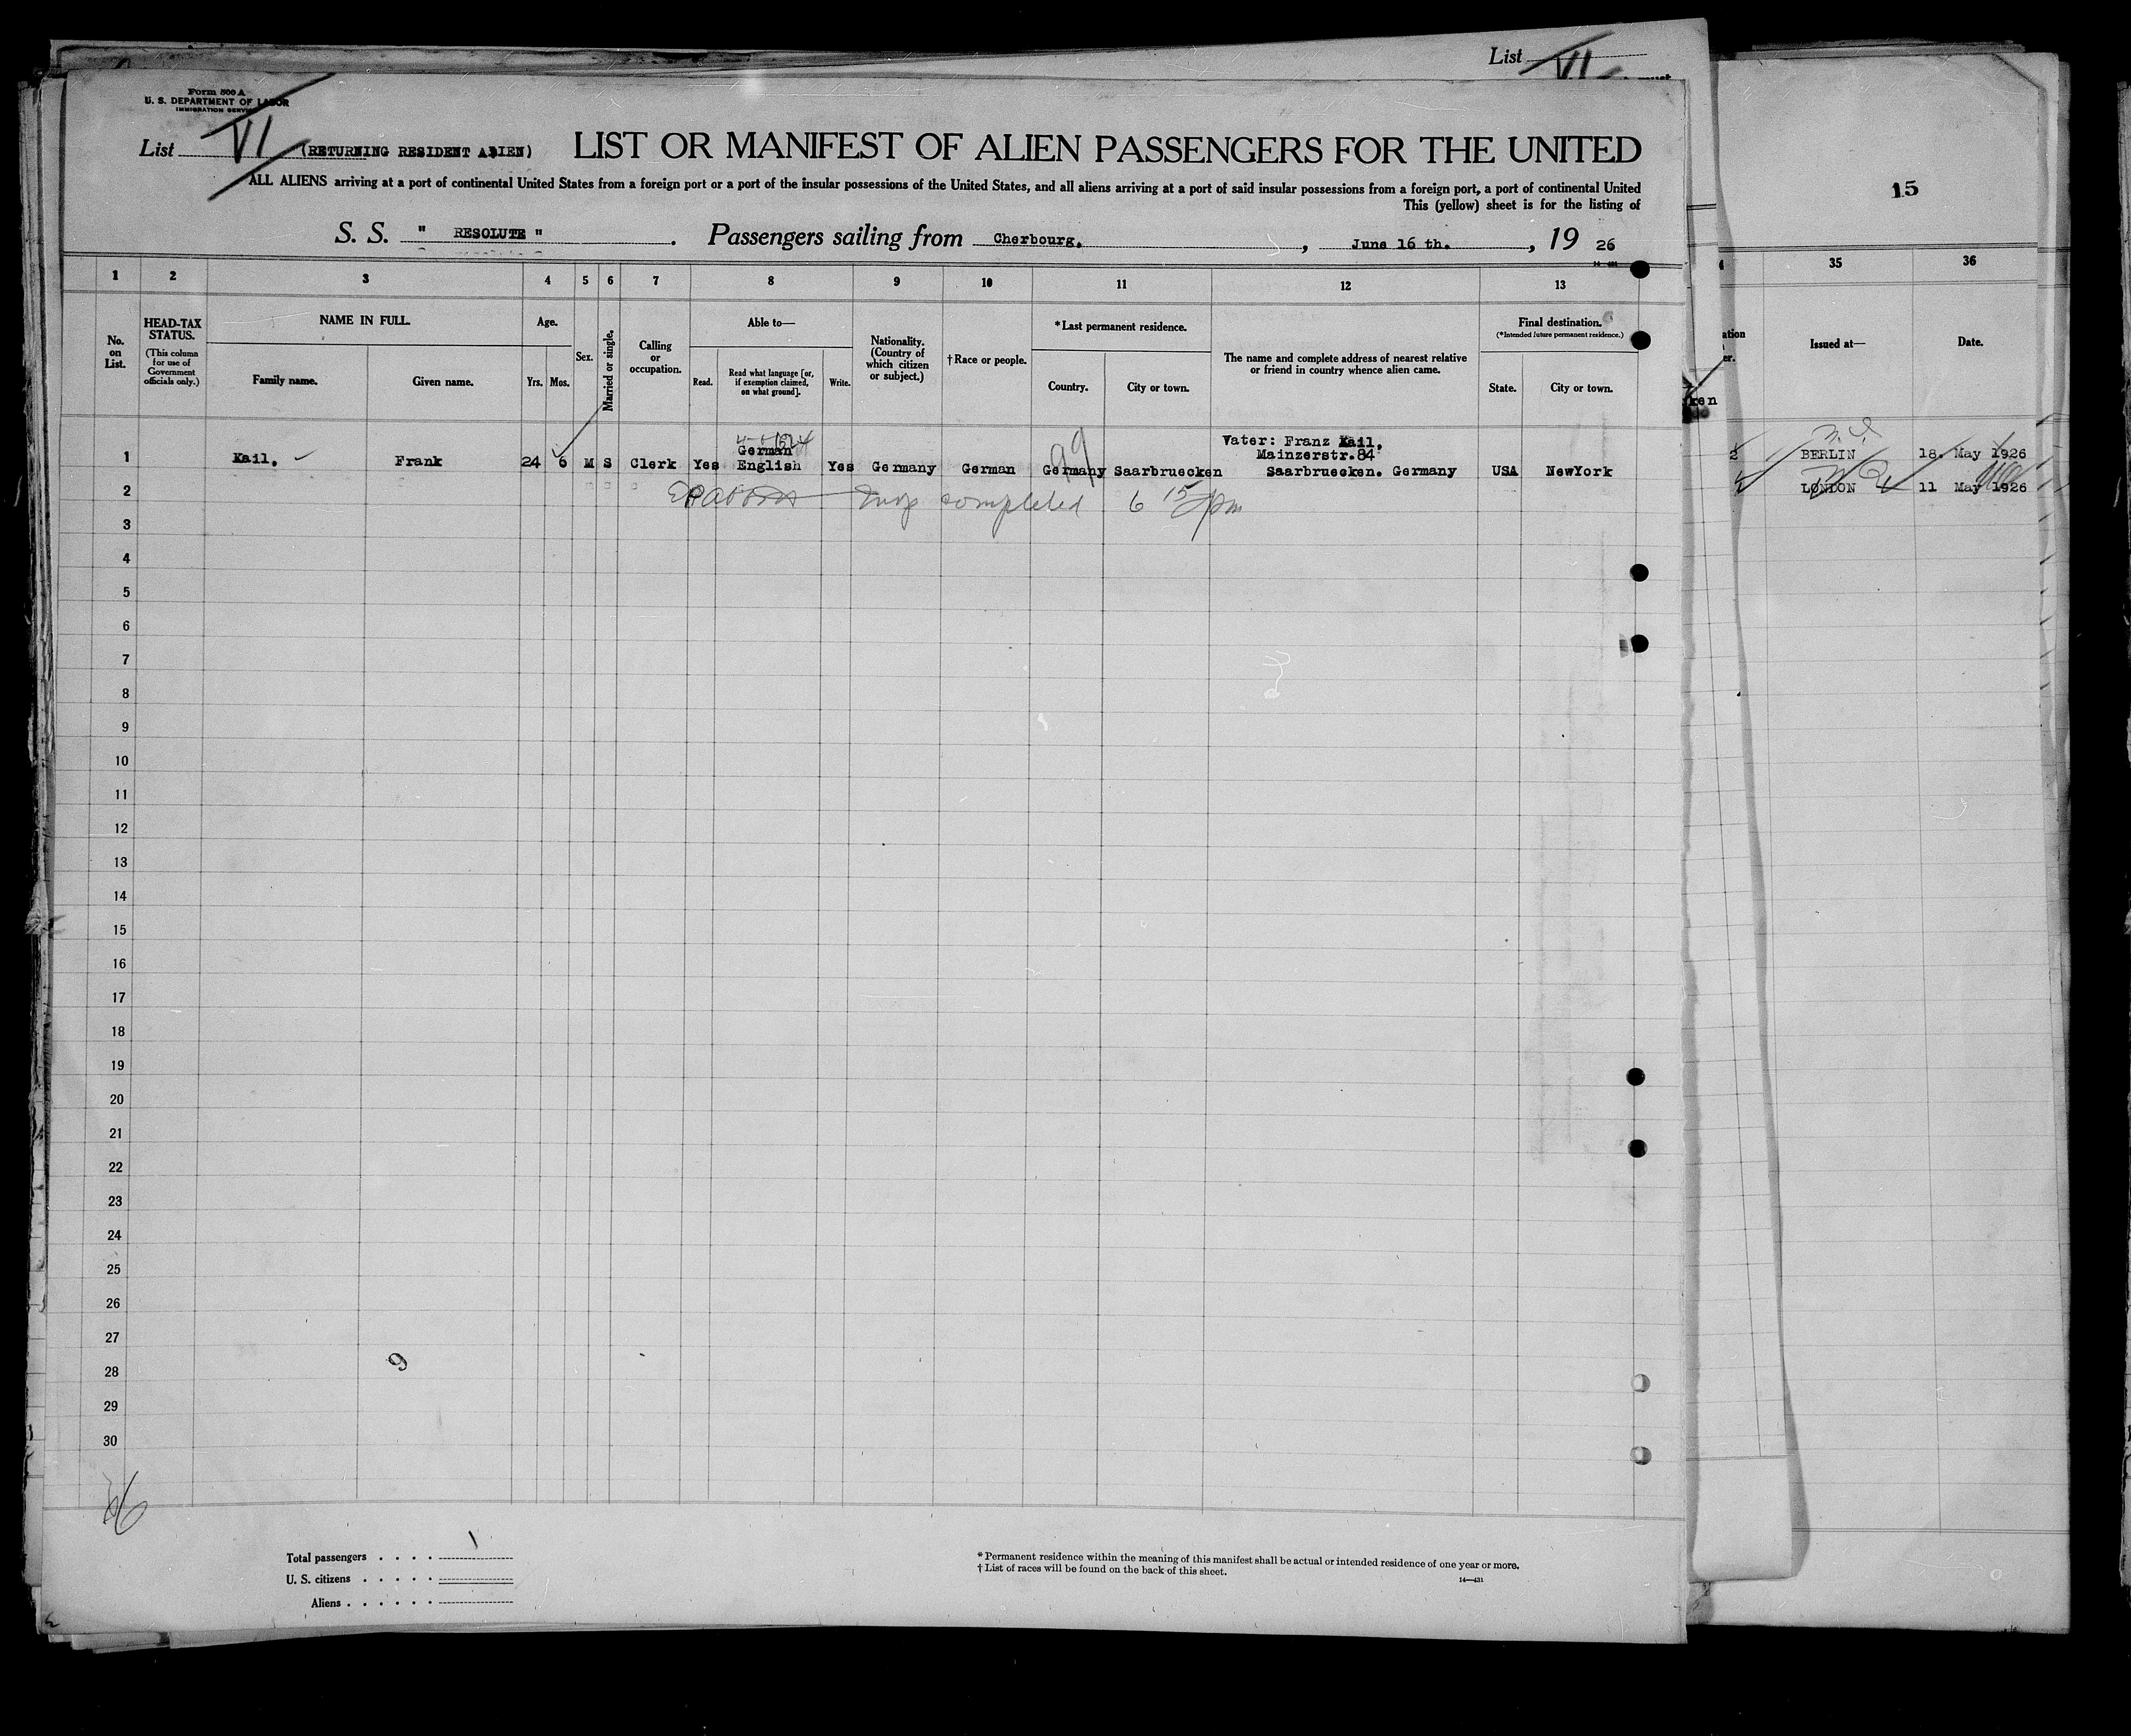 List VI
Form 500 A
U. S. DEPARTMENT OF LABOR
IMMIGRATION SERVICE
List VI (RETURNING RESIDENT ALIEN) LIST OR MANIFEST OF ALIEN PASSENGERS FOR THE UNITED
ALL ALIENS arriving at a port of continental United States from a foreign port or a port of the insular possessions of the United States, and all aliens arriving at a port of said insular possessions from a foreign port, a port of continental United
This (yellow) sheet is for the listing of
15
S. S. " RESOLUTE " . Passengers sailing from Cherbourg. , June 16 th. , 19 26
1 2 3 4 5 6 7 8 9 10 11 12 13
35 36
No. on List.
HEAD-TAX STATUS.
(This column for use of Government officials only.)
NAME IN FULL.
Family name. Given name.
Age.
Yrs. Mos.
Sex.
Married or single.
Calling or occupation.
Able to—
Read. Read what language [or, if exemption claimed, on what ground]. Write.
Nationality. (Country of which citizen or subject.)
† Race or people.
*Last permanent residence.
Country. City or town.
The name and complete address of nearest relative or friend in country whence alien came.
Final destination.
(*Intended future permanent residence.)
State. City or town.
Issued at— Date.
Vater: Franz Kail.
German Mainzerstr.84
1 Kail. Frank 24 6 M S Clerk Yes English Yes Germany German Germany Saarbruecken Saarbruecken. Germany USA NewYork
99
BERLIN 18. May 1926
LONDON 11 May 1926
2 completed 6 15 pm
3
4
5
6
7
8
9
10
11
12
13
14
15
16
17
18
19
20
21
22
23
24
25
26
27
28
29
30
9
Total passengers . . . . 1
U. S. citizens . . . . .
Aliens . . . . . .
* Permanent residence within the meaning of this manifest shall be actual or intended residence of one year or more.
† List of races will be found on the back of this sheet.
14—431